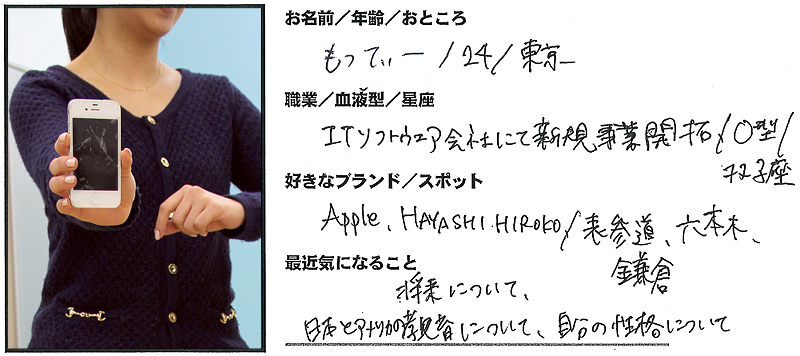 お名前／年齢／おところ
もってぃー / 24 / 東京
職業／血液型／星座
ITソフトウェア会社にて新規事業開拓 / O型 /
双子座
好きなブランド／スポット
Apple、HAYASHI HIROKO / 表参道、六本木、
鎌倉
最近気になること
将来について、
日本とアメリカの教育について、自分の性格について